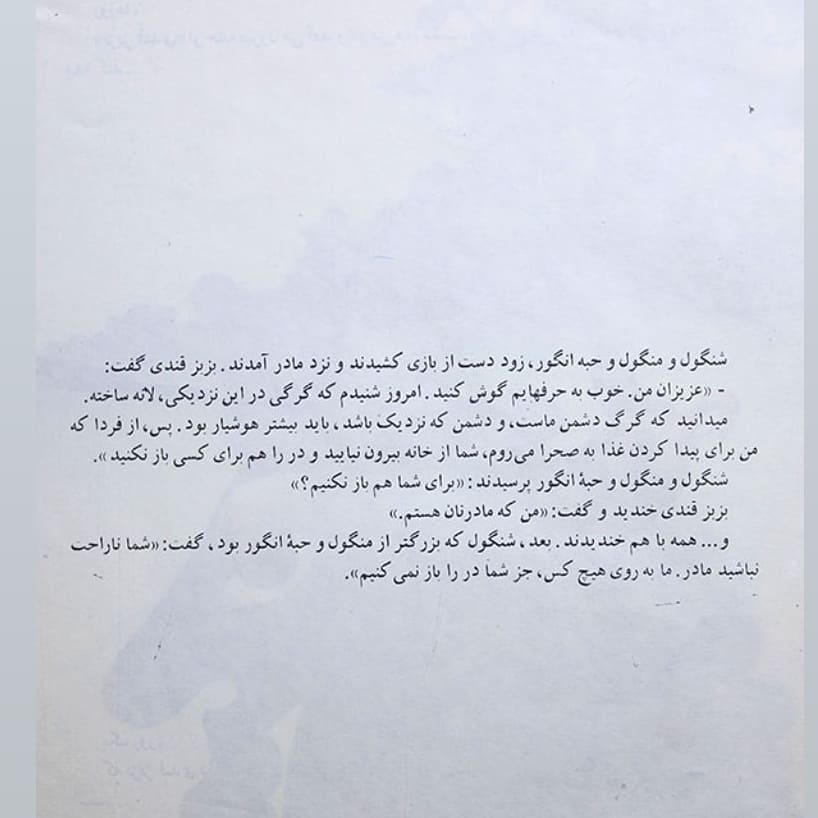 شنگول و منگول و حبه انگور، زود دست از بازی کشیدند و نزد مادر آمدند. بزبز قندی گفت:
- «عزیزان من. خوب به حرفهایم گوش کنید. امروز شنیدم که گرگی در این نزدیکی، لانه ساخته.
میدانید که گرگ دشمن ماست، و دشمن که نزدیک باشد، باید بیشتر هوشیار بود. پس، از فردا که
من برای پیدا کردن غذا به صحرا می‌روم، شما از خانه بیرون نیایید و در را هم برای کسی باز نکنید».
شنگول و منگول و حبهٔ انگور پرسیدند: «برای شما هم باز نکنیم؟»
بزبز قندی خندید و گفت: «من که مادرتان هستم.»
و... همه با هم خندیدند. بعد، شنگول که بزرگتر از منگول و حبهٔ انگور بود، گفت: «شما ناراحت
نباشید مادر. ما به روی هیچ کس، جز شما در را باز نمی‌کنیم».